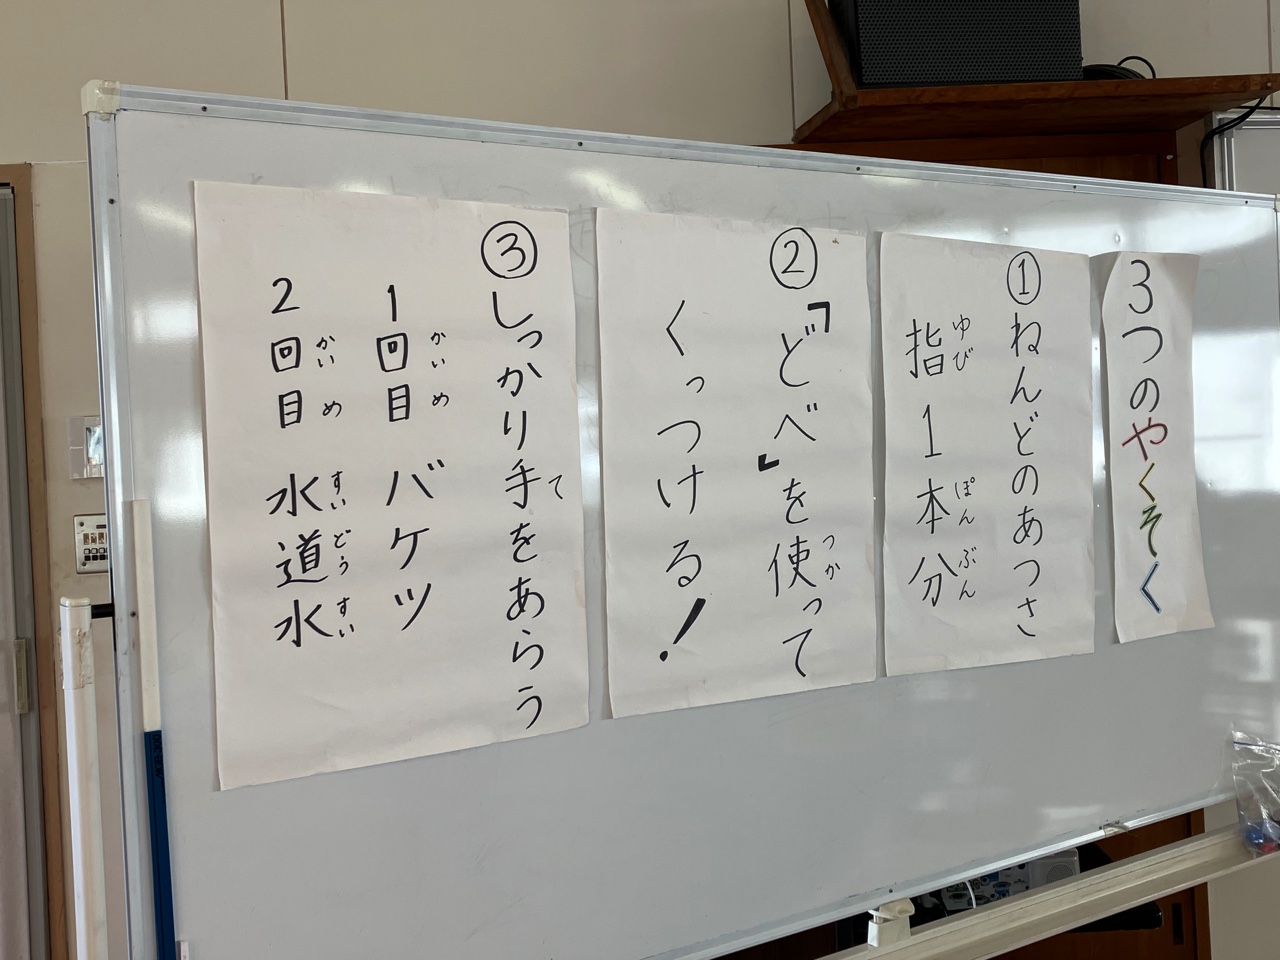 3つのやくそく
①ねんどのあつさ
指1本分
ゆび ぽん ぶん
②「どべ」を使って
つか
くっつける!
③しっかり手をあらう
て
1回目 バケツ
かい め
2回目 水道水
かい め すい どう すい